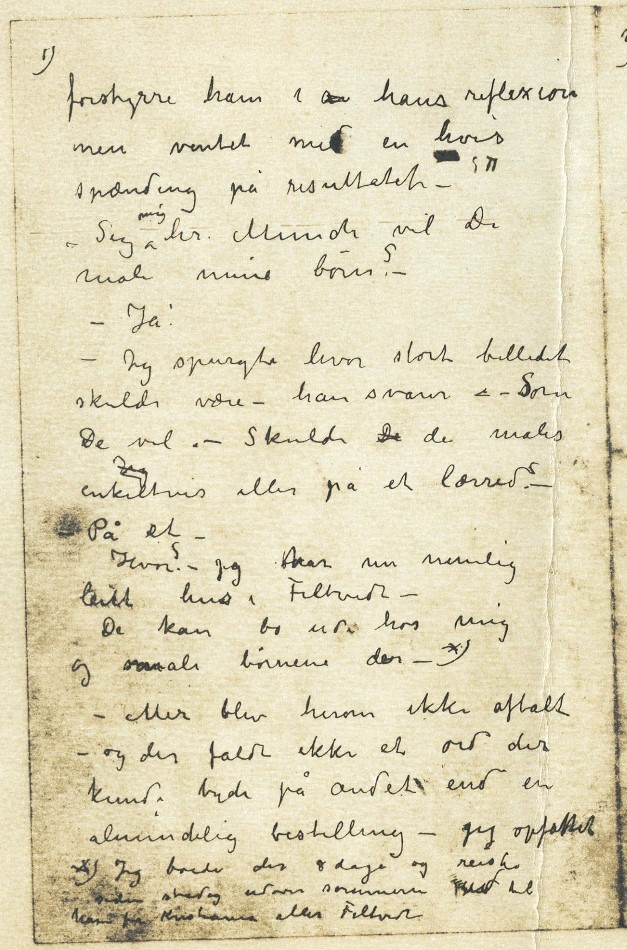 1)
forstyrre ham i hans reflexion
men ventet med en hvis
spænding på resultatet –
– Sig mig hr. Munch vil De
male mine børn? –
– Ja!
– Jeg spurgte hvor stort billedet
skulde være – han svarer – Som
De vil. – Skulde de males
enkeltvis eller på et lærred? –
På et –
Hvor? – jeg har nu nemlig
leiet hus i Filtvedt –
De kan bo ude hos mig
og male børnene der – x)
– Mer blev herom ikke aftalt
– og der faldt ikke et ord der
kunde tyde på andet end en
almindelig bestilling – jeg opfattet
x) Jeg boede der 8 dage og reiste
siden stadig udover sommeren til
ham fra Kristiania eller Filtvedt